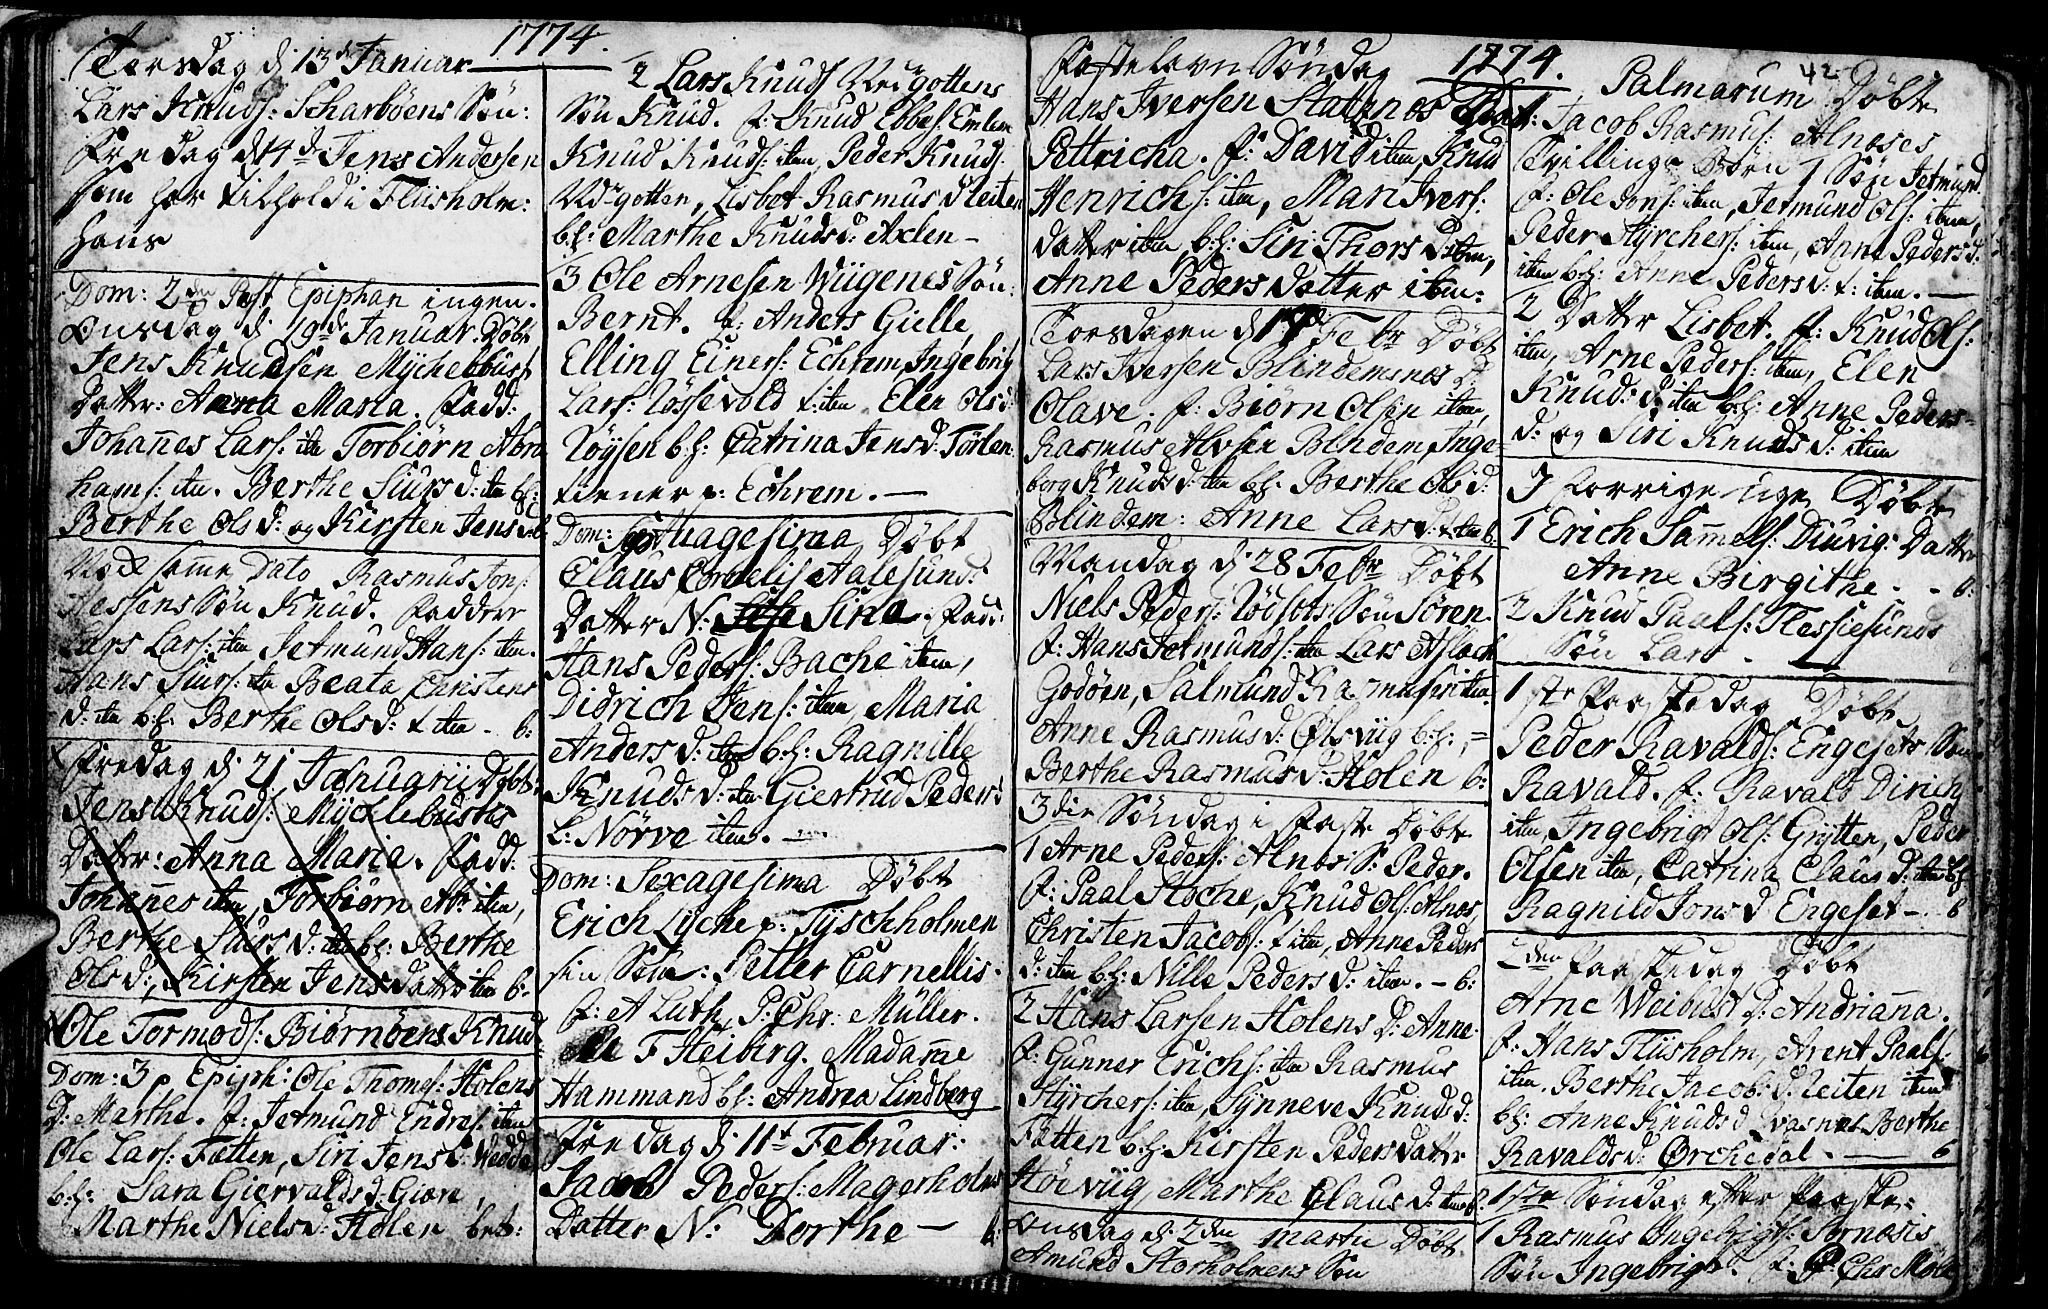 1774.
Torsdag d. 13de Januar
Lars Knuds: Scharbøens Søn:
Fredag d. 14d Jens Andersen
som har tilhold i Fliisholm:
haus
Dom: 2den Post Epiphan ingen.
Onsdag d. 19de Januar. Døbt
Jens Knudsen Myhelbust
Datter: Anna Maria. Fadd:
Johañes Lars: itn Torbiørn Abra
hams: itn. Berthe Siurs d: itn b:h:
Berthe Ols d: og Kirsten Jens d: 6
Ved same Dato Rasmus Jons:
Hessens Søn Knud. Faddere
Lars Lars: itn Jetmund Hans: itm.
Hans Siurs: itn Beata Christens
d: itn b:h: Berthe Ols d: t itn. 6:
Fredag d. 21 Januarii Døbt:
Jens Knuds: Mycklebustes
Datter: Anna Maria. Fadd:
Johañes itm, Torbiørn Abr: itm,
Berthe Siurs d: itn b:h: Berthe
Ols d:, Kirsten Jens datter itm 6:
Ole Tormods: Biørnøens Knud
Dom: 3 p Epiph: Ole Thomes: Holens
D: Marthe. f: Jetmund Endres: itm
Ole Lars: Fætten, Siri Jens d: Wedde
b:h: Sara Giervalds d: Giøn,
Marthe Niels d: Holen bet:
2 Lars Knuds Vedgottens
Søn Knud. f: Knud Ebbes: Emlem
Knud Knuds: itm, Peder Knuds:
Vedgotten, Lisbet Rasmus d Leiten
b:h: Marthe Knuds d: Axlen
3 Ole Arnesen Wiigenes Søn:
Bernt. f: Anders Gielle,
Elling Einers: Echrem, Ingebrig
Lars: Løssevold t: itm Elen Ols d:
Røysen b:h: Catrina Jens d: Torlen
tiener p: Echrem.
Dom: Septuagesima Døbt
Claus Cornelis Aalesunds
Datter N: Sina. Fadd:
Hans Peders: Bache item,
Didrich Jens: itm, Maria
Anders d: itm b:h: Ragnille
Knuds d: itn Giertrud Peders
d: Nørve itm.
Dom: Sexagesima Døbt
Erich Lyche p: Tyschholmen
sin Søn: Petter Carnellis.
f: A Luth, P: Chr: Müller.
F Heiberg. Madam̃e
Hammand b:h: Andrea Lindberg
Fredag d. 11t Februar:
Jacob Peders: Magerholms
Datter N. Dorthe 6:
1774.
42
Fastelavn Søndag
Hans Iversen Stafsnes Dat:
Pettricha. f: David itm, Knud
Henrichs: itm, Mari Ivers:
datter itm, b:h: Siri Thors D: itm,
Anne Peders datter itm:
Torsdagen d. 17de Febr Døbt
Lars Iversen Blindemsnes D:
Olave. f: Biørn Olsen itm,
Rasmus Alvsen Blindem, Inge
borg Knuds d: itm b:h: Berthe Ols d:
Blindem: Anne Lars d: itm 6.
Mandag d. 28 Febr: Døbt
Niels Peders: Rødsets Søn Søren.
f: Hans Jetmunds: itn Lars Aslach
Godøen, Salmund Rasmussen itn.
Anne Rasmus d: Olsviig b:h:,
Berthe Rasmus d: Holen 6:
3die Søndag i Faste Døbt
1 Arne Peders: Alnes S: Peder.
f: Paal Stoche, Knud Ols: Alnes,
Christen Jacobs: t itm, Anne Peders
d: itm b:h: Nille Peders d: itm. - 6:
2 Hans Larsen Holens D: Anne.
f: Gunner Erichs: itm Rasmus
Styrchers: itm, Synneve Knuds d:
Fætten b:h: Kirsten Peders datter
Høeviig Marthe Claus d: itm 6:
Onsdag d. 2den Martii Døbt
Amund Storholmens Søn
Palmarum Døbt
1: Jacob Rasmus: Alneses
Tvillinge Børn 1 Søn Jetmund
f: Ole Jons: itm, Jetmund Ols: itm,
Peder Styrchers: itm, Anne Peders d:
itm b:h: Anne Peders d: t: itm.
2 Datter Lisbet. f: Knud Ols:
itm, Arne Peders: itm, Elen
Knuds d: itm b:h: Anne Peders
d: og Siri Knuds d: itm
I Forrige uge Døbt
1 Erich Sam̃els: Diuvig: Datter
Anne Birgithe. - 6:
2 Knud Paals: Flessiesunds
Søn Lars.
1ste Paaskedag Døbt
Peder Ravalds: Engesets Søn
Ravald. f: Ravald Dirich
itm, Ingebrigt Ols: Grytten, Peder
Olsen itm, Catrina Claus d: itm b:h:
Ragnild Jons d Engeset - 6
2den Paaskedag Døbt
Arne Weibust D: Andriañа.
f: Hans Fliisholm, Arent Paals:
itm. Berthe Jacobs d: Leiten itm
b:h: Anne Knuds d Qvasnes Berthe
Ravalds d: Ørchedal. 6
1ste Søndag efter Paaske:
1 Rasmus Ingebrigts: Sørnæsis
Søn Ingebrigt. f: P: Chr Møller